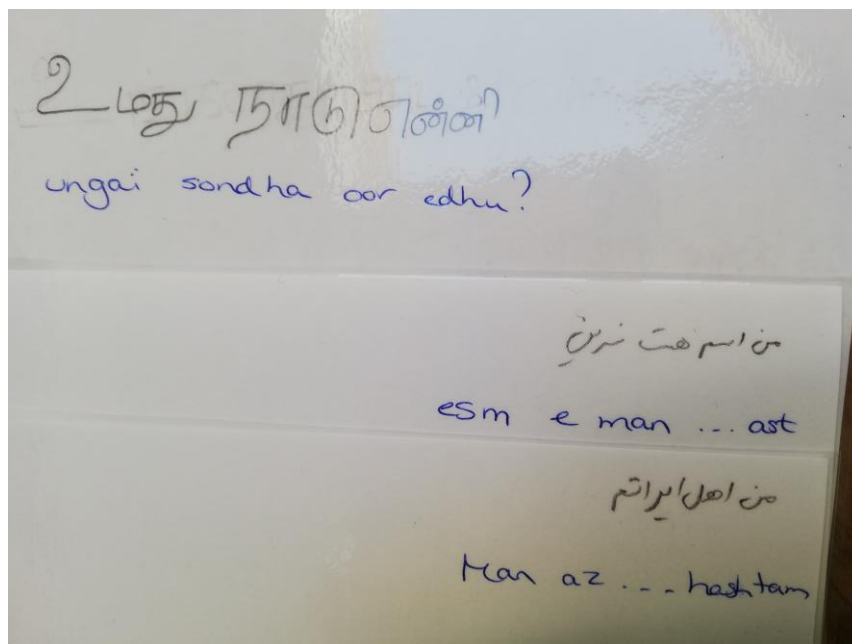 உமது நாடு என்னி
ungai sondha oor edhu?
من اسم هست نرين
esm e man ... ast
من اهل ایرانم
Man az ... hashtam